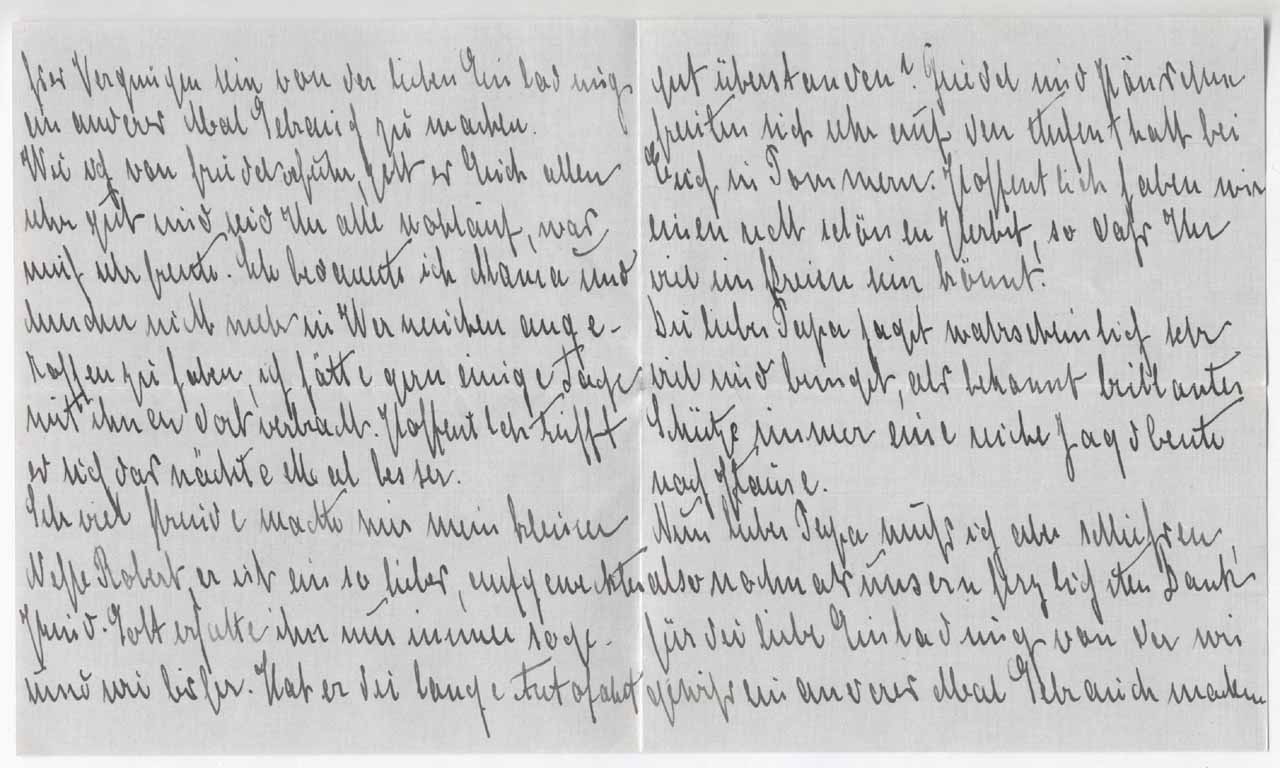 Vergnügen sein von der lieben Einladung
ein anderes Mal Gebrauch zu machen.
Wie ich von Friedel erfuhr, geht es Euch allen
sehr gut und seid Ihr alle wohlauf, was
mich sehr freute. Sehr bedauerte ich Mama und
nicht mehr in ange-
troffen zu haben, ich hätte gern einige Tage
mit ihnen dort verbracht. Hoffentlich trifft
es sich das nächste Mal besser.
Sehr viel Freude machte mir mein kleiner
Neffe Robert, er ist ein so lieber, aufgeweckter
Gott erhalte ihn nur immer so ge-
sund wie bisher. Hat er die lange Autofahrt
gut überstanden? Friedel und Hänschen
freuten sich sehr auf den Aufenthalt bei
Euch in Pommern. Hoffentlich haben wir
einen recht schönen Herbst, so daß Ihr
viel im Freien sein könnt.
Du lieber Papa jagst wahrscheinlich sehr
viel und bringst, als bekannt brillanter
Schütze, immer eine reiche Jagdbeute
nach Hause.
Nun lieber Papa muß ich aber schließen,
also nochmals unsern herzlichsten Dank
für die liebe Einladung von der wir
gewiß ein anderes Mal Gebrauch machen